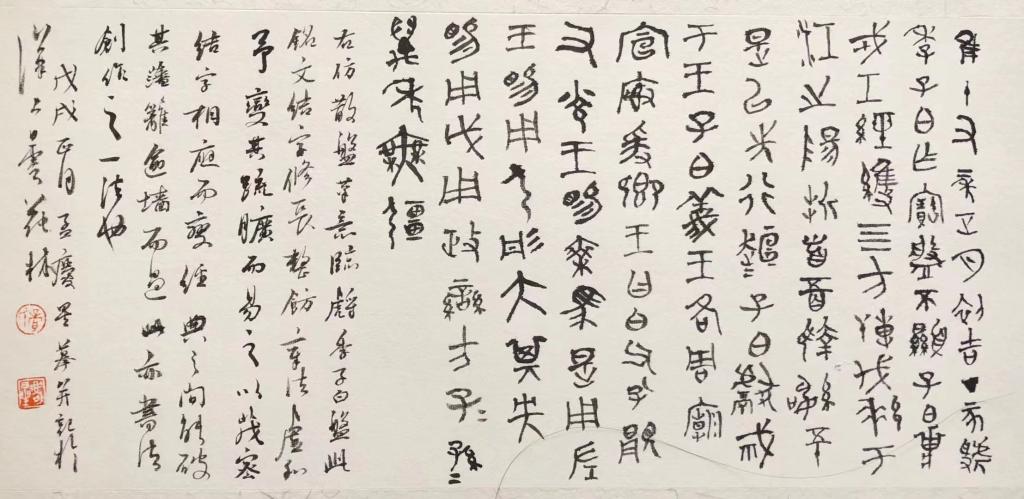 隹十又二年正月初吉丁亥虢
季子白乍寶盤不顯子白
戎工經維四方博伐于
洛之陽折首五百執訊五十
是以先行子白獻戒
于王子白義王各周廟
宣榭爰鄉王曰白父孔顯
又光王賜乘馬是用左
王賜用弓彤矢其央
賜用戉用政蠻方子孫
萬年無疆
右仿散盤筆意臨虢季子白盤此
銘文結字修長整飭章法虛和
予變其疏曠而易之以茂密
結字相應而變經典之間能破
其藩籬逾墻而過此亦書法
創作之一法也
戊戌正月慶墨摹並記於
漢上雲花林